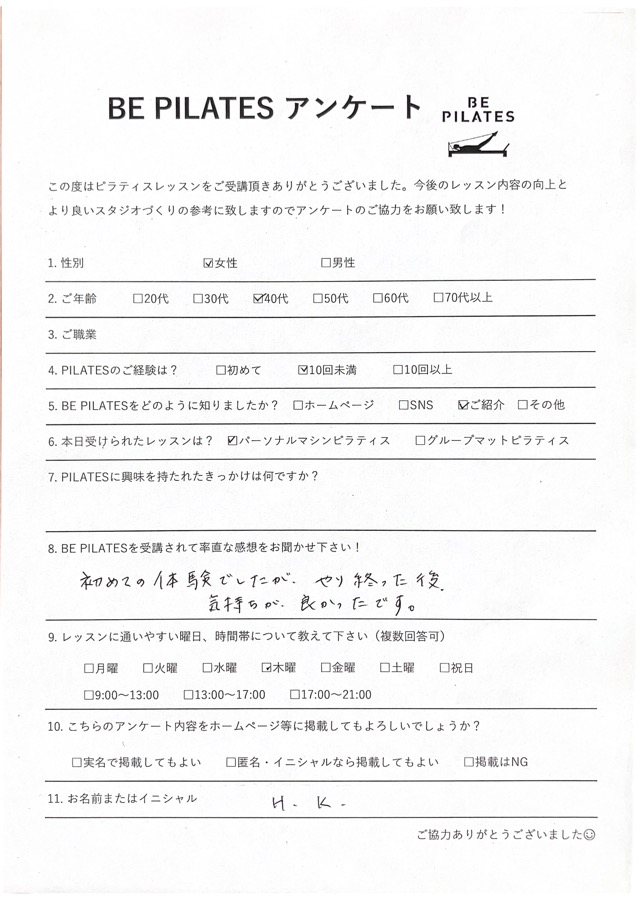 BE PILATES アンケート
BE
PILATES
この度はピラティスレッスンをご受講頂きありがとうございました。今後のレッスン内容の向上と
より良いスタジオづくりの参考に致しますのでアンケートのご協力をお願い致します！
1. 性別 ☑女性 □男性
2. ご年齢 □20代 □30代 ☑40代 □50代 □60代 □70代以上
3. ご職業
4. PILATESのご経験は？ □初めて ☑10回未満 □10回以上
5. BE PILATESをどのように知りましたか？ □ホームページ □SNS ☑ご紹介 □その他
6. 本日受けられたレッスンは？ ☑パーソナルマシンピラティス □グループマットピラティス
7. PILATESに興味を持たれたきっかけは何ですか？
8. BE PILATESを受講されて率直な感想をお聞かせ下さい！
初めての体験でしたが、やり終った後、
気持ちが、良かったです。
9. レッスンに通いやすい曜日、時間帯について教えて下さい（複数回答可）
□月曜 □火曜 □水曜 ☑木曜 □金曜 □土曜 □祝日
□9:00～13:00 □13:00～17:00 □17:00～21:00
10. こちらのアンケート内容をホームページ等に掲載してもよろしいでしょうか？
□実名で掲載してもよい □匿名・イニシャルなら掲載してもよい □掲載はNG
11. お名前またはイニシャル H. K.
ご協力ありがとうございました☺